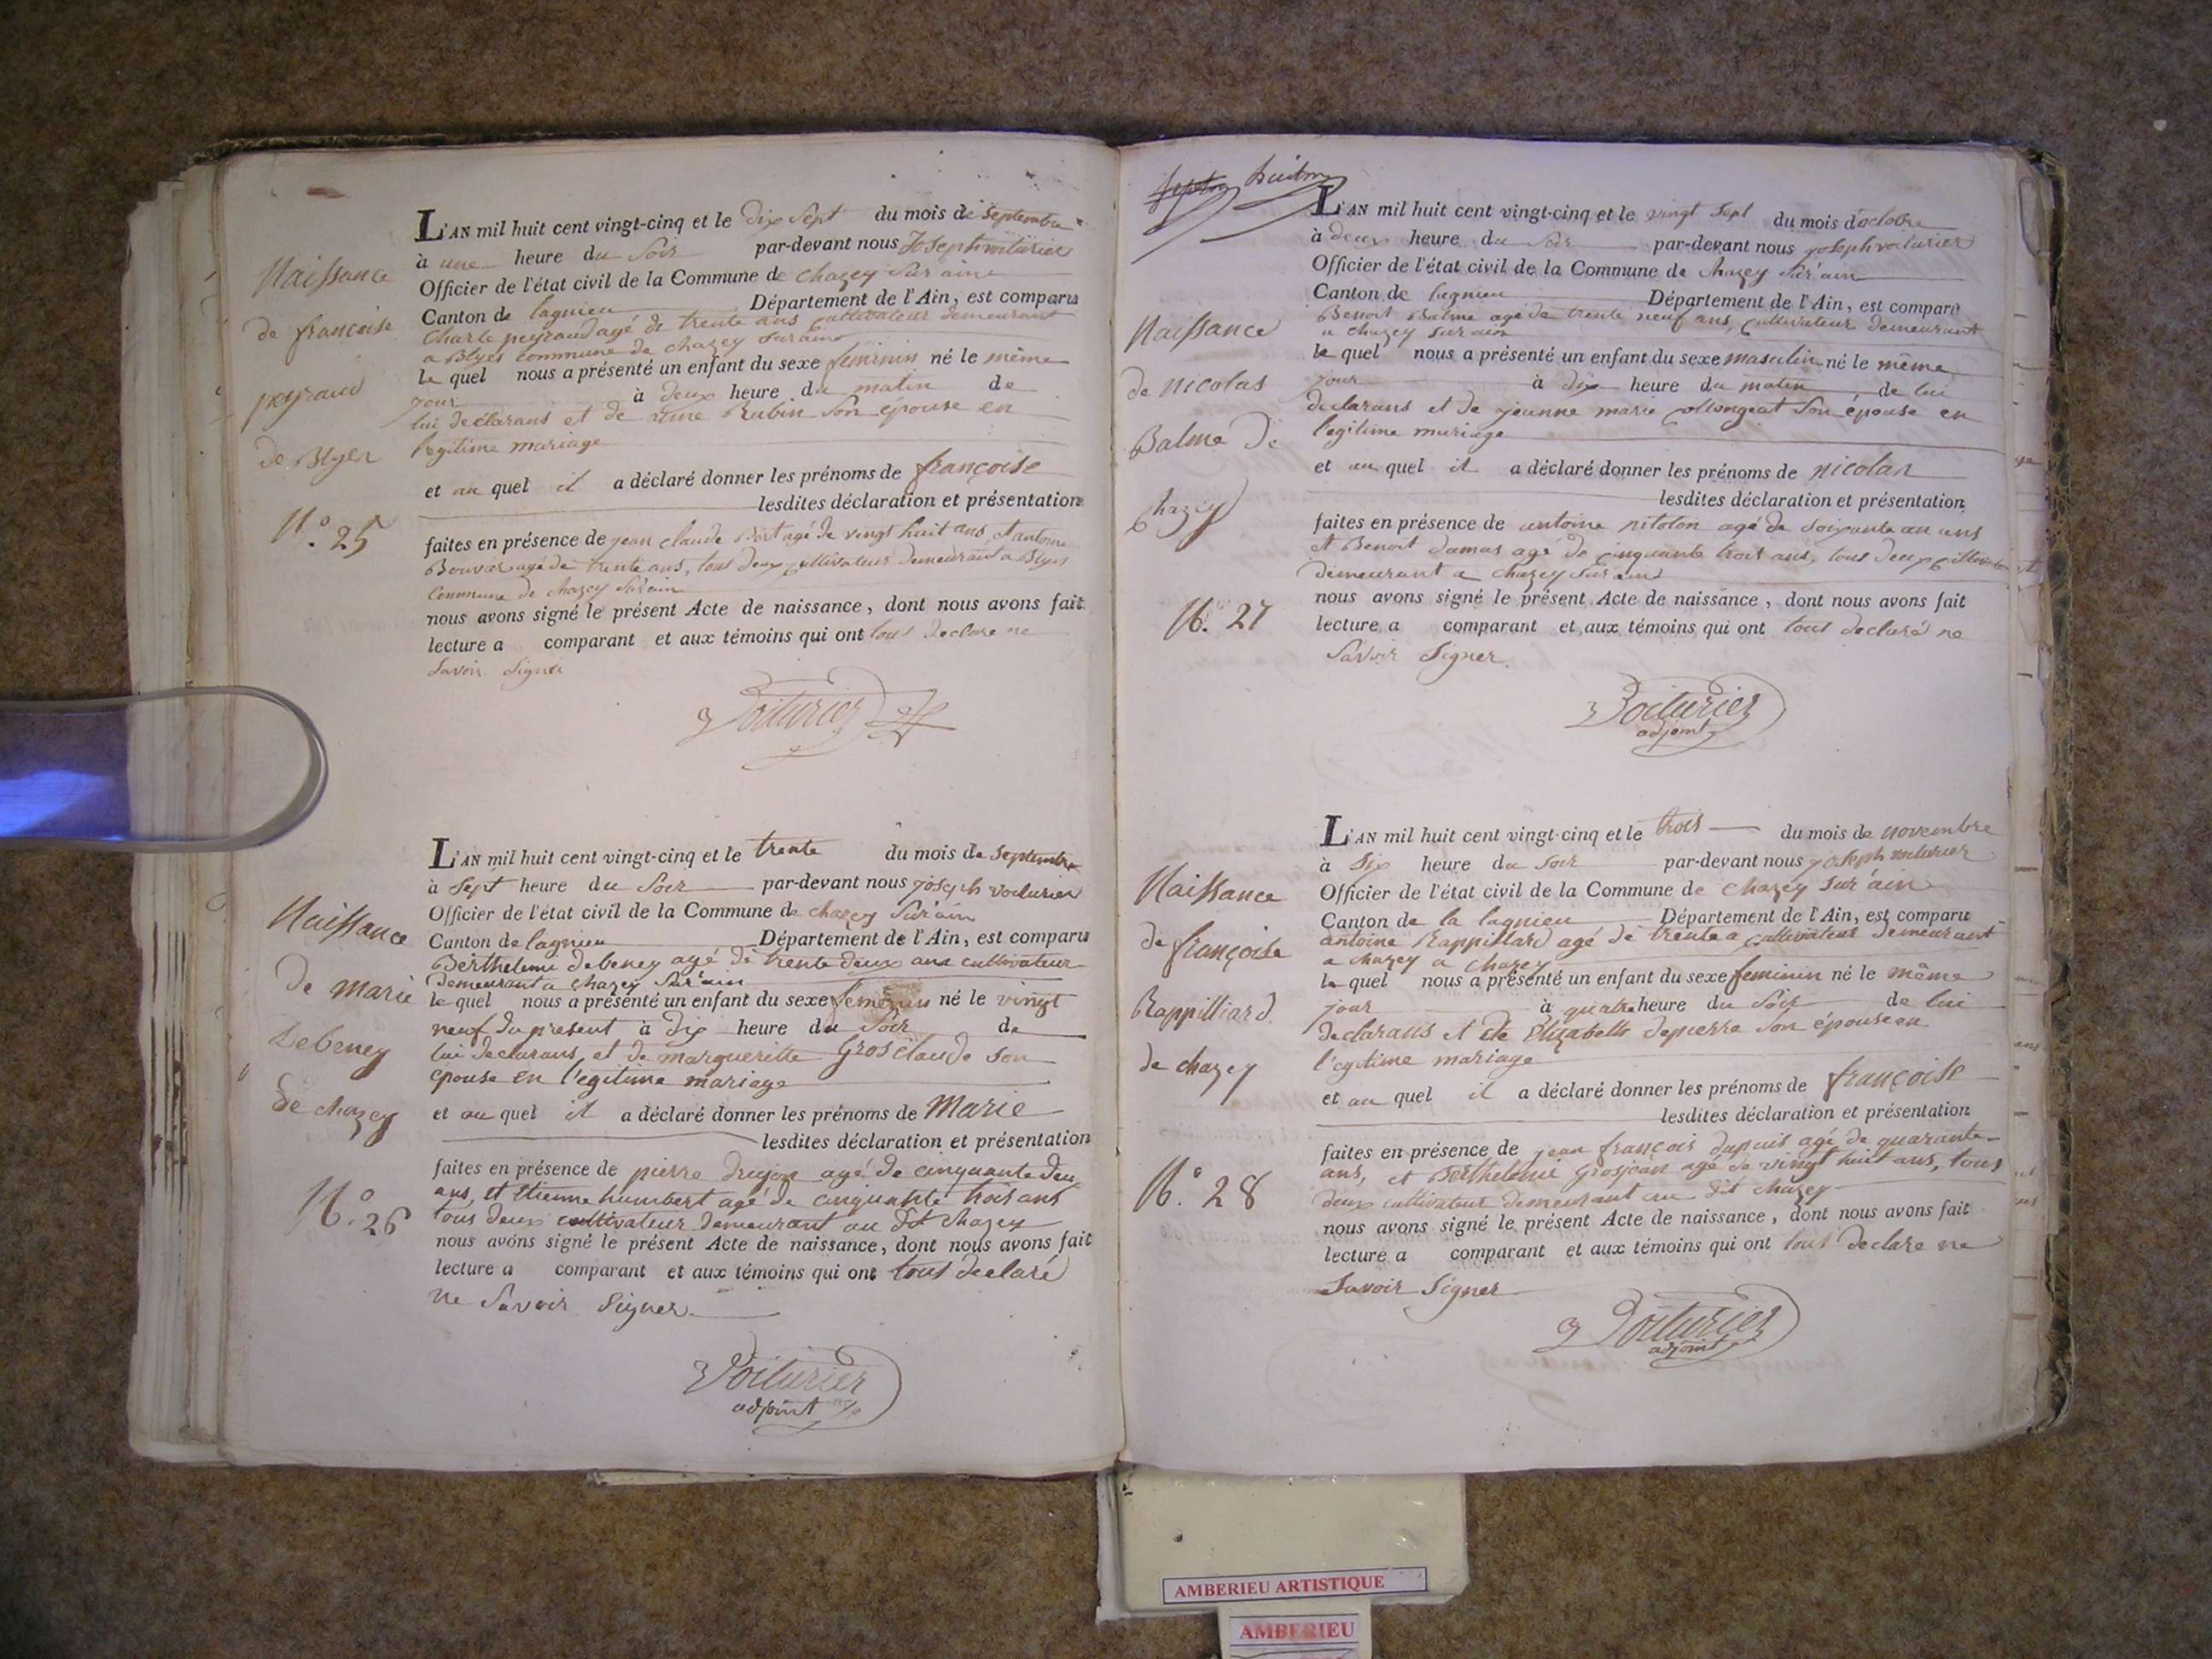 Naissance
de françoise
peyraud
de Blyes
N.° 25
L'AN mil huit cent vingt-cinq et le dix sept du mois de septembre
à une heure du soir par-devant nous Joseph voiturier
Officier de l'état civil de la Commune de chazey sur ain
Canton de lagnieu Département de l'Ain, est comparu
Charle peyraud agé de trente ans cultivateur demeurant
a Blyes commune de chazey sur ain
le quel nous a présenté un enfant du sexe feminin né le même
jour à deux heure du matin de
lui declarans et de Rubin son épouse en
legitime mariage
et au quel il a déclaré donner les prénoms de françoise
lesdites déclaration et présentation
faites en présence de jean claude Bort agé de vingt huit ans, et antoine
Bouvier agé de trente ans, tous deux cultivateur demeurant a Blyes
Commune de chazey sur ain
nous avons signé le présent Acte de naissance, dont nous avons fait
lecture a comparant et aux témoins qui ont tous declare ne
savoir signer
Voiturier
Naissance
de marie
debeney
de chazey
N.° 26
L'AN mil huit cent vingt-cinq et le trente du mois de septembre
à sept heure du soir par-devant nous joseph voiturier
Officier de l'état civil de la Commune de chazey sur ain
Canton de lagnieu Département de l'Ain, est comparu
Berthelemi debeney agé de trente deux ans cultivateur
demeurant a chazey sur ain
le quel nous a présenté un enfant du sexe femenin né le vingt
neuf du present à dix heure du soir de
lui declarans, et de margueritte Grosclaude son
epouse en l'egitime mariage
et au quel il a déclaré donner les prénoms de Marie
lesdites déclaration et présentation
faites en présence de pierre drujon agé de cinquante deux
ans, et Etienne humbert agé de cinquante trois ans
tous deux cultivateur demeurant au dit chazey
nous avons signé le présent Acte de naissance, dont nous avons fait
lecture a comparant et aux témoins qui ont tous declaré
ne savoir signer
Voiturier
adjoint
huitm
Naissance
de nicolas
Balme de
chazey
N. 27
L'AN mil huit cent vingt-cinq et le vingt sept du mois d'octobre
à deux heure du soir par-devant nous joseph voiturier
Officier de l'état civil de la Commune de chazey sur ain
Canton de lagnieu Département de l'Ain, est comparu
Benoit Balme agé de trente neuf ans, cultivateur demeurant
a chazey sur ain
le quel nous a présenté un enfant du sexe masculin né le même
jour à dix heure du matin de lui
declarans et de jeanne marie collongeat son épouse en
l'egitime mariage
et au quel il a déclaré donner les prénoms de nicolas
lesdites déclaration et présentation
faites en présence de antoine agé de soixante un ans
et Benoit dumas agé de cinquante trois ans, tous deux
demeurant a chazey sur ain
nous avons signé le présent Acte de naissance, dont nous avons fait
lecture a comparant et aux témoins qui ont tous declaré ne
savoir signer
Voiturier
adjoint
Naissance
de françoise
Rappilliard
de chazey
N.° 28
L'AN mil huit cent vingt-cinq et le trois du mois de novembre
à six heure du soir par-devant nous joseph voiturier
Officier de l'état civil de la Commune de chazey sur ain
Canton de la lagnieu Département de l'Ain, est comparu
antoine Rappillard agé de trente a cultivateur demeurant
a chazey a chazey
le quel nous a présenté un enfant du sexe feminin né le même
jour à quatre heure du soir de lui
declarans et de Elizabeth depierre son épouse en
l'egitime mariage
et au quel il a déclaré donner les prénoms de françoise
lesdites déclaration et présentation
faites en présence de jean françois dupuis agé de quarante
ans, et Berthelemi Grosjean agé de vingt huit ans, tous
deux cultivateur demeurant au dit chazey
nous avons signé le présent Acte de naissance, dont nous avons fait
lecture a comparant et aux témoins qui ont tous declare ne
savoir signer
Voiturier
adjoint
AMBERIEU ARTISTIQUE
AMBERIEU